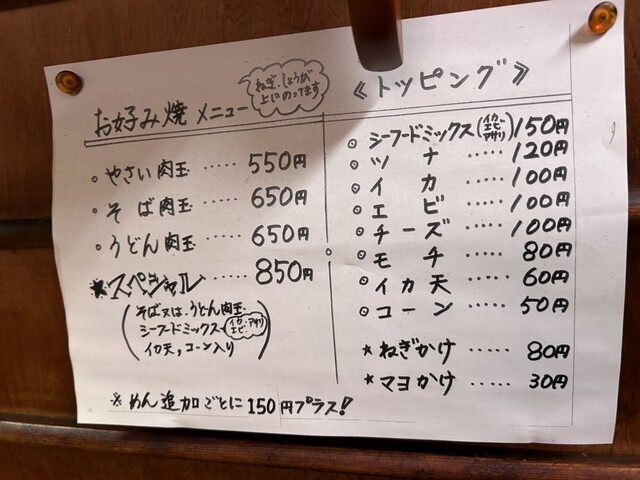 お好み焼 メニュー
ねぎ、しょうが
上にのってます
。やさい肉玉 ‥‥‥ 550円
。そば肉玉 ‥‥‥ 650円
。うどん肉玉 ‥‥‥ 650円
★スペシャル ‥‥‥ 850円
(そば又は、うどん肉玉
シーフードミックス(イカ・アサリ エビ)
イカ天、コーン入り)
※めん追加ごとに150円プラス!
《トッピング》
。シーフードミックス(イカ エビ アサリ) 150円
。ツナ ‥‥‥ 120円
。イカ ‥‥‥ 100円
。エビ ‥‥‥ 100円
。チーズ ‥‥‥ 100円
。モチ ‥‥‥ 80円
。イカ天 ‥‥‥ 60円
。コーン ‥‥‥ 50円
★ねぎかけ ‥‥‥ 80円
★マヨかけ ‥‥‥ 30円